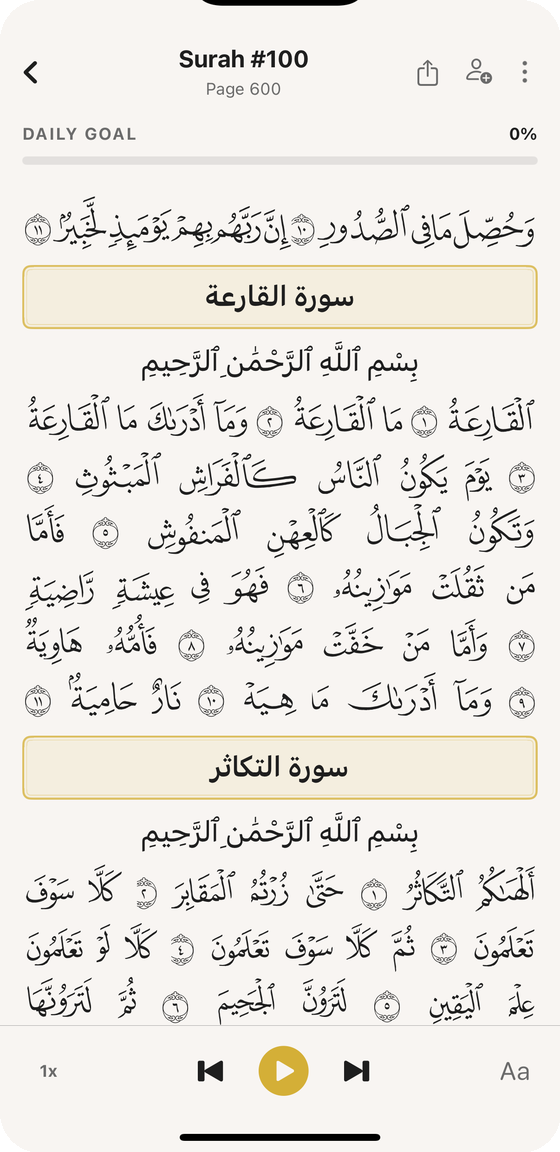 Surah #100
Page 600
DAILY GOAL
0%
وَحُصِّلَ مَا فِى ٱلصُّدُورِ ١٠ إِنَّ رَبَّهُم بِهِمْ يَوْمَئِذٍ لَّخَبِيرٌۢ ١١
سورة القارعة
بِسْمِ ٱللَّهِ ٱلرَّحْمَٰنِ ٱلرَّحِيمِ
ٱلْقَارِعَةُ ١ مَا ٱلْقَارِعَةُ ٢ وَمَآ أَدْرَىٰكَ مَا ٱلْقَارِعَةُ
٣ يَوْمَ يَكُونُ ٱلنَّاسُ كَٱلْفَرَاشِ ٱلْمَبْثُوثِ ٤
وَتَكُونُ ٱلْجِبَالُ كَٱلْعِهْنِ ٱلْمَنفُوشِ ٥ فَأَمَّا
مَن ثَقُلَتْ مَوَٰزِينُهُۥ ٦ فَهُوَ فِى عِيشَةٍ رَّاضِيَةٍ
٧ وَأَمَّا مَنْ خَفَّتْ مَوَٰزِينُهُۥ ٨ فَأُمُّهُۥ هَاوِيَةٌ
٩ وَمَآ أَدْرَىٰكَ مَا هِيَهْ ١٠ نَارٌ حَامِيَةٌۢ ١١
سورة التكاثر
بِسْمِ ٱللَّهِ ٱلرَّحْمَٰنِ ٱلرَّحِيمِ
أَلْهَىٰكُمُ ٱلتَّكَاثُرُ ١ حَتَّىٰ زُرْتُمُ ٱلْمَقَابِرَ ٢ كَلَّا سَوْفَ
تَعْلَمُونَ ٣ ثُمَّ كَلَّا سَوْفَ تَعْلَمُونَ ٤ كَلَّا لَوْ تَعْلَمُونَ
عِلْمَ ٱلْيَقِينِ ٥ لَتَرَوُنَّ ٱلْجَحِيمَ ٦ ثُمَّ لَتَرَوُنَّهَا
1x
Aa